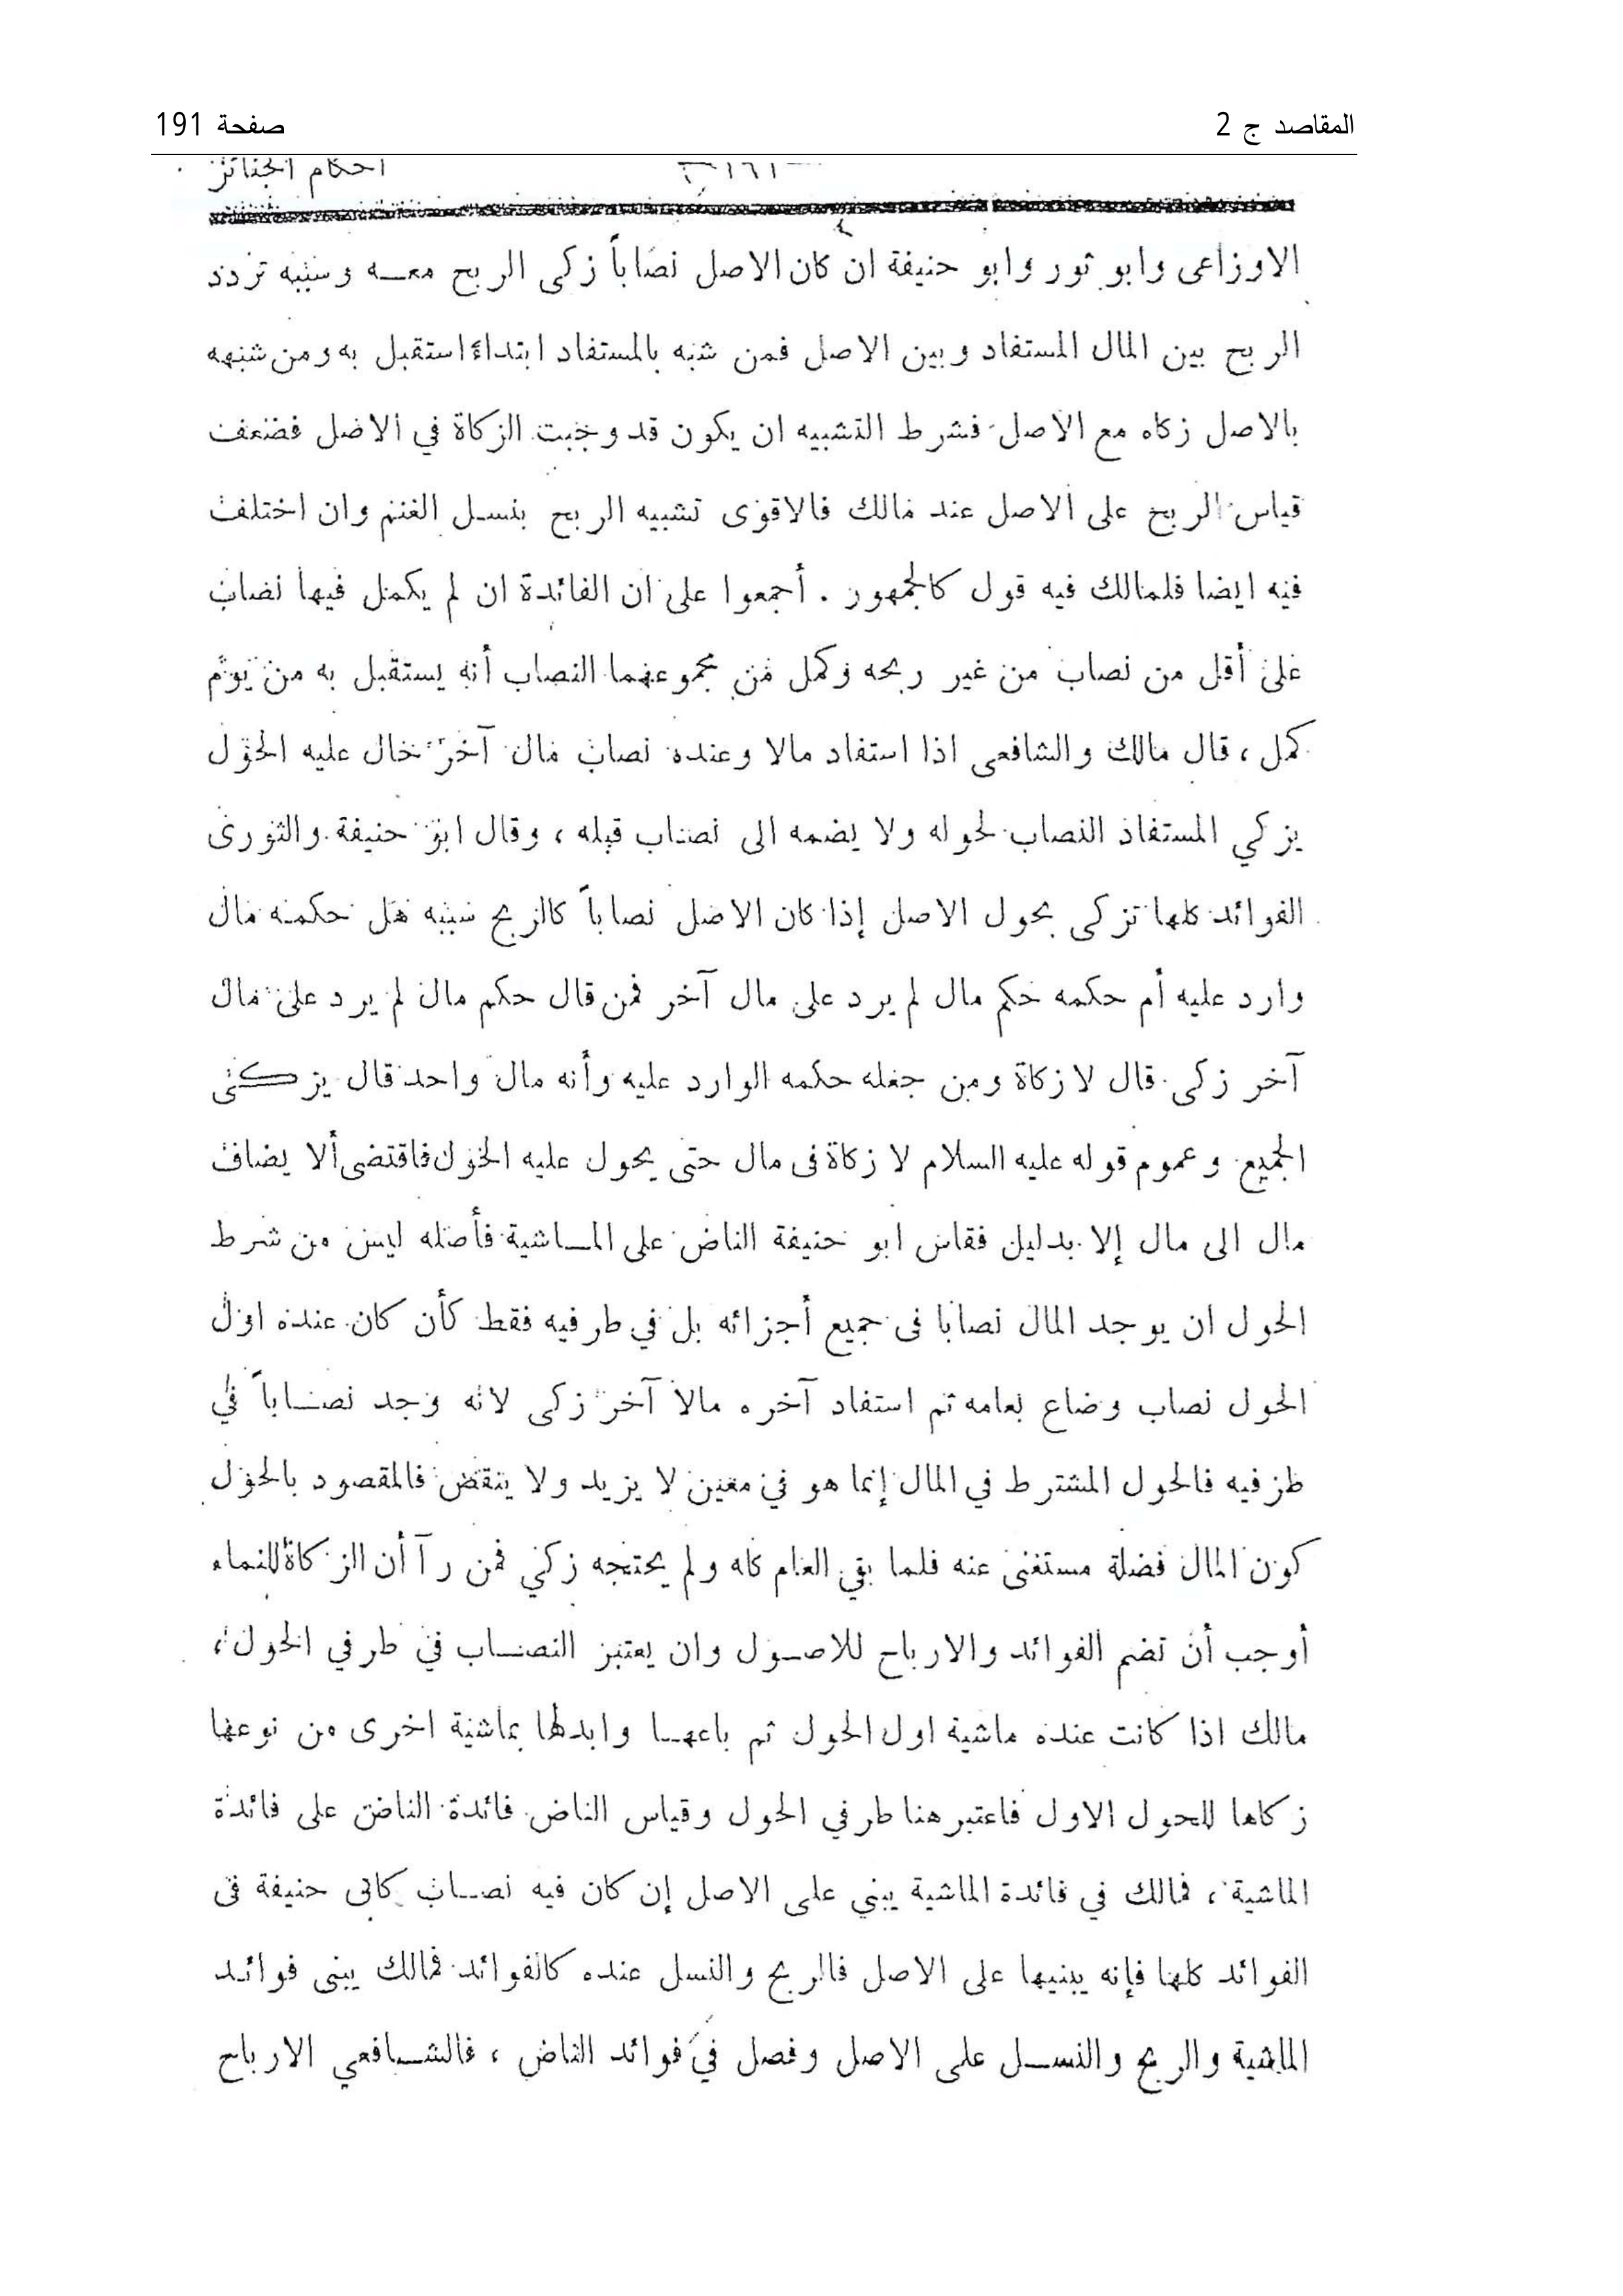 المقاصد ج 2 صفحة 191
احكام الجنائز —١٦١—
الاوزاعى وابو ثور وابو حنيفة ان كان الاصل نصاباً زكى الربح معه وسببه تردد
الربح بين المال المستفاد وبين الاصل فمن شبه بالمستفاد ابتداء استقبل به ومن شبهه
بالاصل زكاه مع الاصل فشرط التشبيه ان يكون قد وجبت الزكاة في الاصل فضعف
قياس الربح على الاصل عند مالك فالاقوى تشبيه الربح بنسل الغنم وان اختلف
فيه ايضا فلمالك فيه قول كالجمهور . أجمعوا على ان الفائدة ان لم يكمل فيها نصاب
على أقل من نصاب من غير ربحه وكمل من مجموعهما النصاب أنه يستقبل به من يوم
كمل ، قال مالك والشافعى اذا استفاد مالا وعنده نصاب مال آخر حال عليه الحول
يزكي المستفاد النصاب لحوله ولا يضمه الى نصاب قبله ، وقال ابو حنيفة والثورى
الفوائد كلها تزكى بحول الاصل إذا كان الاصل نصاباً كالربح سببه هل حكمه مال
وارد عليه أم حكمه حكم مال لم يرد على مال آخر فمن قال حكم مال لم يرد على مال
آخر زكى قال لا زكاة ومن جعله حكمه الوارد عليه وأنه مال واحد قال يزكى
الجميع وعموم قوله عليه السلام لا زكاة فى مال حتى يحول عليه الحول فاقتضى ألا يضاف
مال الى مال إلا بدليل فقاس ابو حنيفة الناض على الماشية فأصله ليس من شرط
الحول ان يوجد المال نصابا فى جميع أجزائه بل في طرفيه فقط كأن كان عنده اول
الحول نصاب وضاع بعامه ثم استفاد آخره مالا آخر زكى لانه وجد نصاباً في
طرفيه فالحول المشترط في المال إنما هو في معين لا يزيد ولا ينقض فالمقصود بالحول
كون المال فضلة مستغنى عنه فلما بقي العام كله ولم يحتجه زكي فمن رآ أن الزكاة للنماء
أوجب أن تضم الفوائد والارباح للاصول وان يعتبر النصاب في طرفي الحول ،
مالك اذا كانت عنده ماشية اول الحول ثم باعها وابدلها بماشية اخرى من نوعها
زكاها للحول الاول فاعتبر هنا طرفي الحول وقياس الناض فائدة الناض على فائدة
الماشية ، فمالك في فائدة الماشية يبني على الاصل إن كان فيه نصاب كابى حنيفة فى
الفوائد كلها فإنه يبنيها على الاصل فالربح والنسل عنده كالفوائد فمالك يبنى فوائد
الماشية والربح والنسل على الاصل وفصل في فوائد الناض ، فالشافعي الارباح